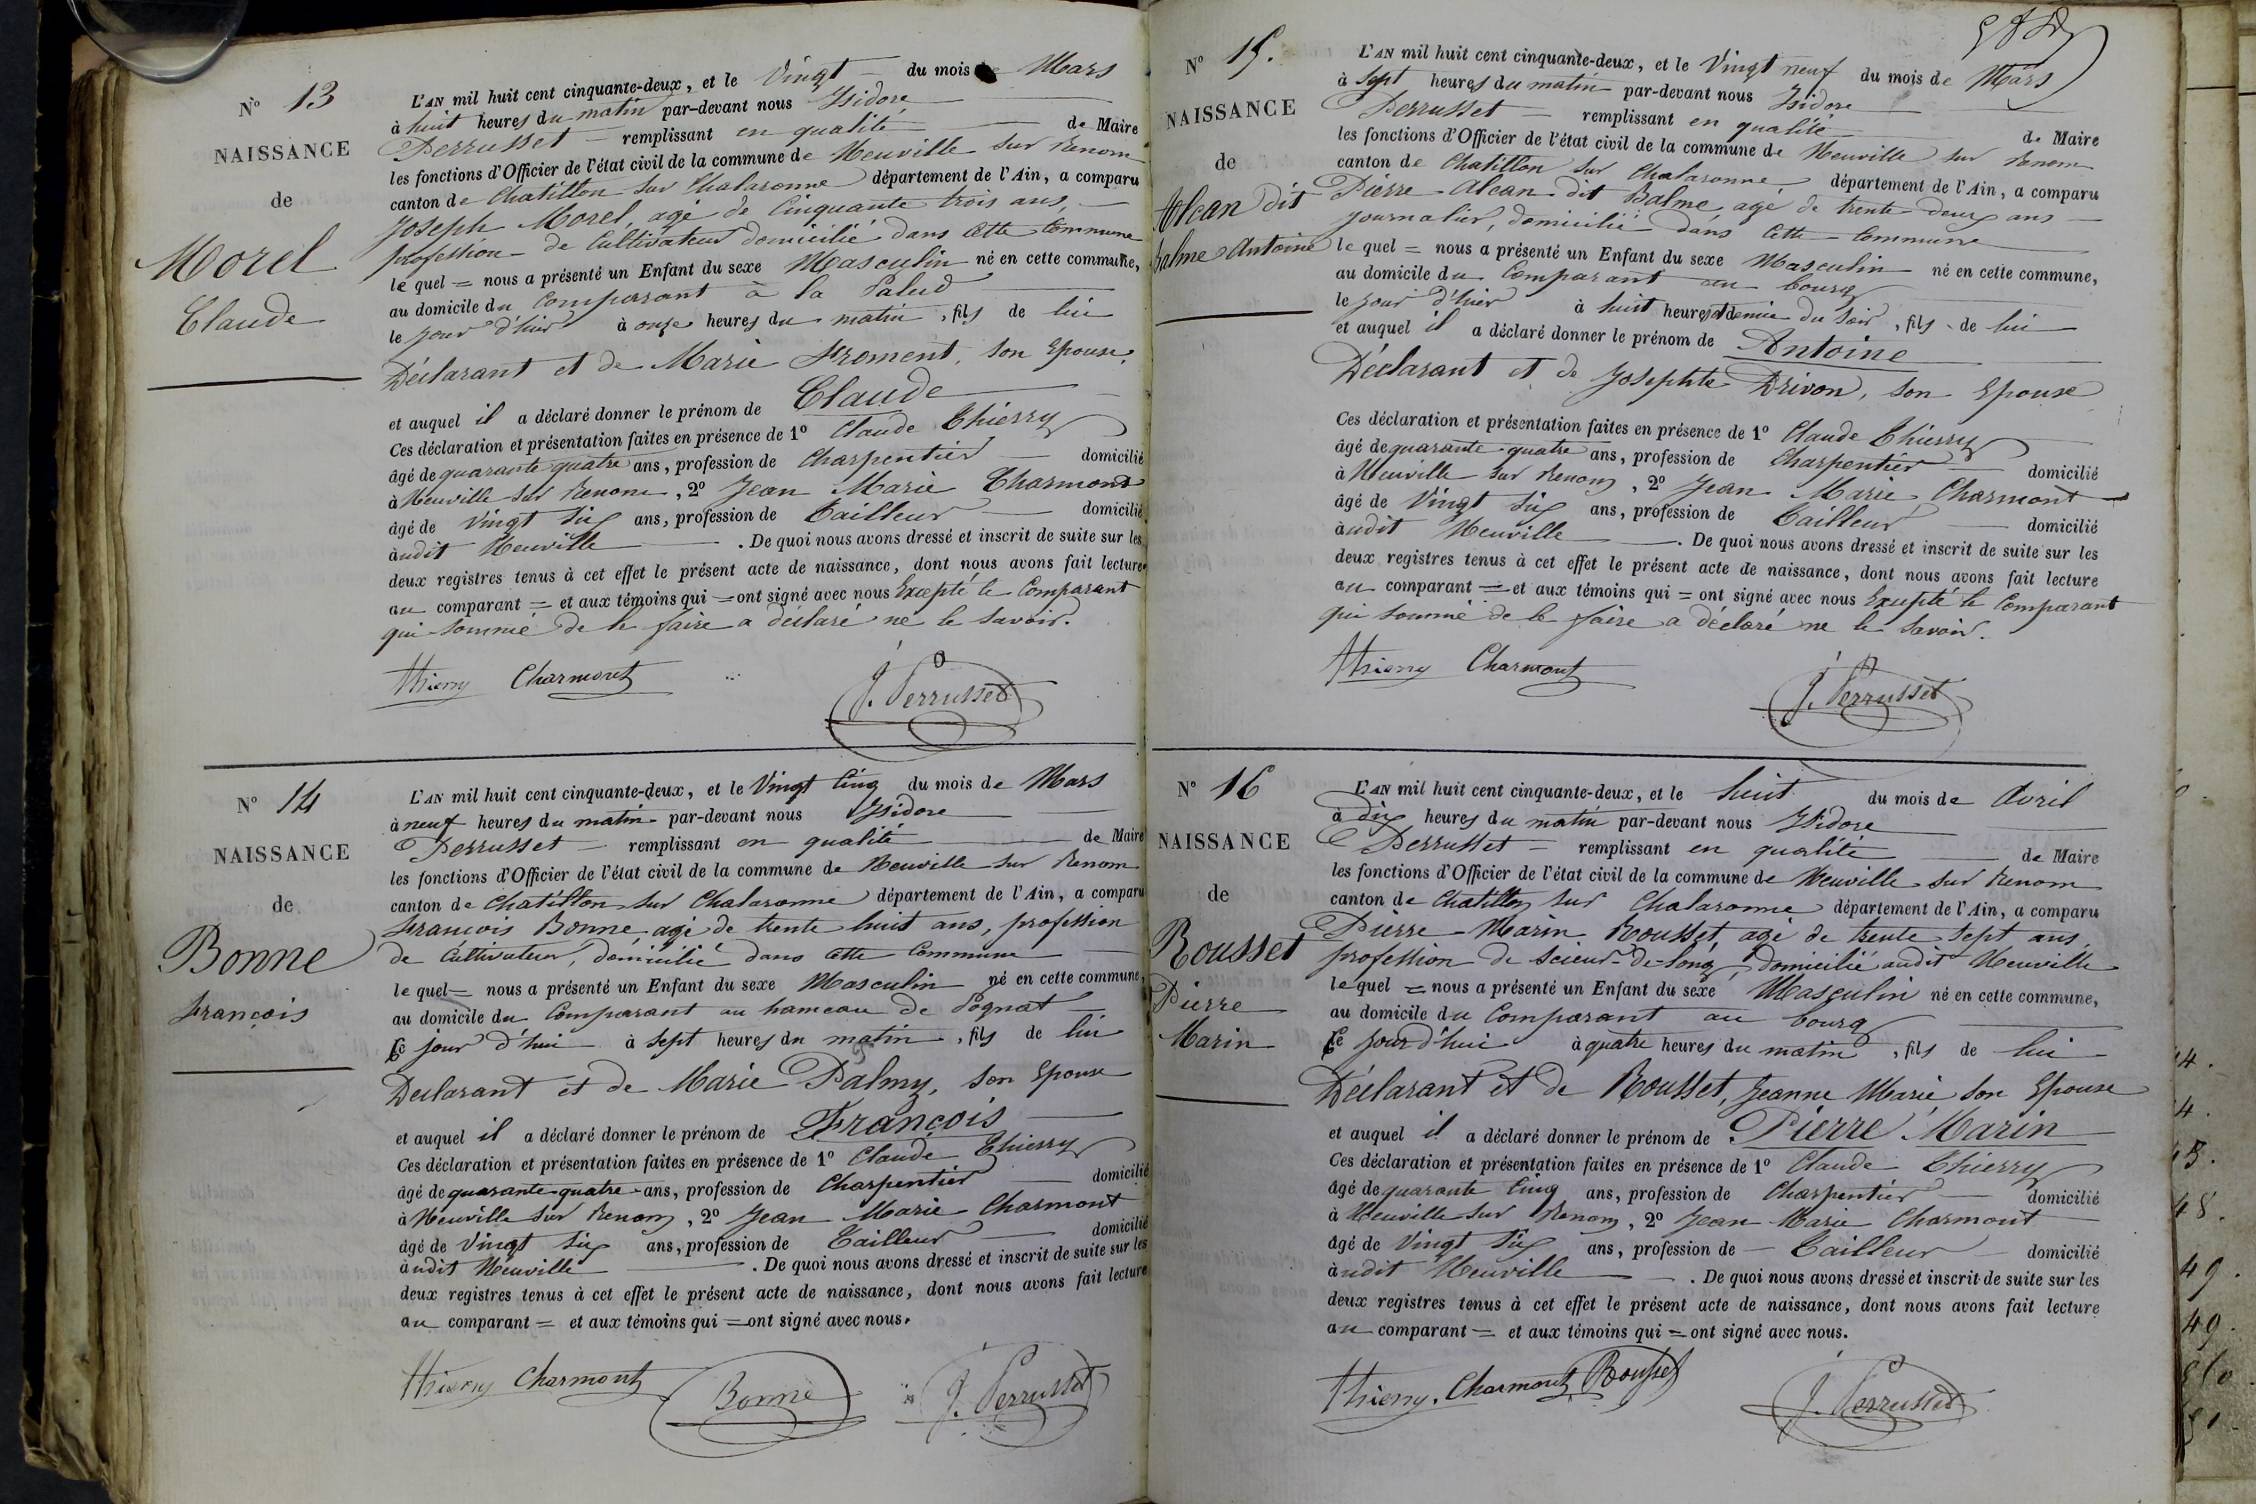 N° 13
NAISSANCE
de
Morel
Claude
L'AN mil huit cent cinquante-deux, et le Vingt du mois de Mars
à huit heures du matin par-devant nous Isidore
Perrusset remplissant en qualité de Maire
les fonctions d'Officier de l'état civil de la commune de Neuville sur Renom
canton de Chatillon sur Chalaronne département de l'Ain, a comparu
Joseph Morel, agé de Cinquante trois ans,
profession de Cultivateur domicilié dans cette Commune
le quel = nous a présenté un Enfant du sexe Masculin né en cette commune,
au domicile du Comparant à la Palud
le jour d'hier à onze heures du matin, fils de lui
Déclarant et de Marie Froment, son Epouse,
et auquel il a déclaré donner le prénom de Claude
Ces déclaration et présentation faites en présence de 1° Claude Thierry
âgé de quarante quatre ans, profession de Charpentier domicilié
à Neuville sur Renom, 2° Jean Marie Charmont
âgé de Vingt six ans, profession de Tailleur domicilié
àudit Neuville . De quoi nous avons dressé et inscrit de suite sur les
deux registres tenus à cet effet le présent acte de naissance, dont nous avons fait lecture
au comparant = et aux témoins qui = ont signé avec nous Excepté le Comparant
qui sommé de le faire a déclaré ne le savoir.
Thierry Charmont J. Perrusset
N° 14
NAISSANCE
de
Bonne
François
L'AN mil huit cent cinquante-deux, et le Vingt Cinq du mois de Mars
à neuf heures du matin par-devant nous Isidore
Perrusset remplissant en qualité de Maire
les fonctions d'Officier de l'état civil de la commune de Neuville sur Renom
canton de Chatillon sur Chalaronne département de l'Ain, a comparu
François Bonne agé de trente huit ans, profession
de Cultivateur, domicilié dans cette Commune
le quel = nous a présenté un Enfant du sexe Masculin né en cette commune,
au domicile du Comparant au hameau de Pognat
Ce jour d'hui à sept heures du matin, fils de lui
Déclarant et de Marie Palmy, son Epouse
et auquel il a déclaré donner le prénom de François
Ces déclaration et présentation faites en présence de 1° Claude Thierry
âgé de quarante quatre ans, profession de Charpentier domicilié
à Neuville sur Renom, 2° Jean Marie Charmont
âgé de Vingt six ans, profession de Tailleur domicilié
àudit Neuville . De quoi nous avons dressé et inscrit de suite sur les
deux registres tenus à cet effet le présent acte de naissance, dont nous avons fait lecture
au comparant = et aux témoins qui = ont signé avec nous.
Thierry Charmont Bonne J. Perrusset
N° 15.
NAISSANCE
de
Alcan dit
Balme Antoine
L'AN mil huit cent cinquante-deux, et le Vingt neuf du mois de Mars
à Sept heures du matin par-devant nous Isidore
Perrusset remplissant en qualité de Maire
les fonctions d'Officier de l'état civil de la commune de Neuville sur Renom
canton de Chatillon sur Chalaronne département de l'Ain, a comparu
Pierre Alcan dit Balme, agé de trente deux ans
journalier, domicilié dans cette Commune
le quel = nous a présenté un Enfant du sexe Masculin né en cette commune,
au domicile du Comparant au bourg
le jour d'hier à huit heures et demie du soir, fils de lui
et auquel il a déclaré donner le prénom de Antoine
Déclarant et de Josephte Drivon, son Epouse
Ces déclaration et présentation faites en présence de 1° Claude Thierry
âgé de quarante quatre ans, profession de Charpentier domicilié
à Neuville sur Renom, 2° Jean Marie Charmont
âgé de Vingt six ans, profession de Tailleur domicilié
àudit Neuville . De quoi nous avons dressé et inscrit de suite sur les
deux registres tenus à cet effet le présent acte de naissance, dont nous avons fait lecture
au comparant = et aux témoins qui = ont signé avec nous Excepté le Comparant
qui sommé de le faire a déclaré ne le savoir.
Thierry Charmont J. Perrusset
N° 16
NAISSANCE
de
Rousset
Pierre
Marin
L'AN mil huit cent cinquante-deux, et le huit du mois de Avril
à dix heures du matin par-devant nous Isidore
Perrusset = remplissant en qualité de Maire
les fonctions d'Officier de l'état civil de la commune de Neuville sur Renom
canton de Chatillon sur Chalaronne département de l'Ain, a comparu
Pierre Marin Rousset, agé de trente sept ans
profession de Scieur-de-long, domicilié audit Neuville
le quel = nous a présenté un Enfant du sexe Masculin né en cette commune,
au domicile du Comparant au bourg
Ce jour d'hui à quatre heures du matin, fils de lui
Déclarant et de Rousset, Jeanne Marie son Epouse
et auquel il a déclaré donner le prénom de Pierre Marin
Ces déclaration et présentation faites en présence de 1° Claude Thierry
âgé de quarante Cinq ans, profession de Charpentier domicilié
à Neuville sur Renom, 2° Jean Marie Charmont
âgé de Vingt six ans, profession de Tailleur domicilié
àudit Neuville . De quoi nous avons dressé et inscrit de suite sur les
deux registres tenus à cet effet le présent acte de naissance, dont nous avons fait lecture
au comparant = et aux témoins qui = ont signé avec nous.
Thierry. Charmont Rousset J. Perrusset